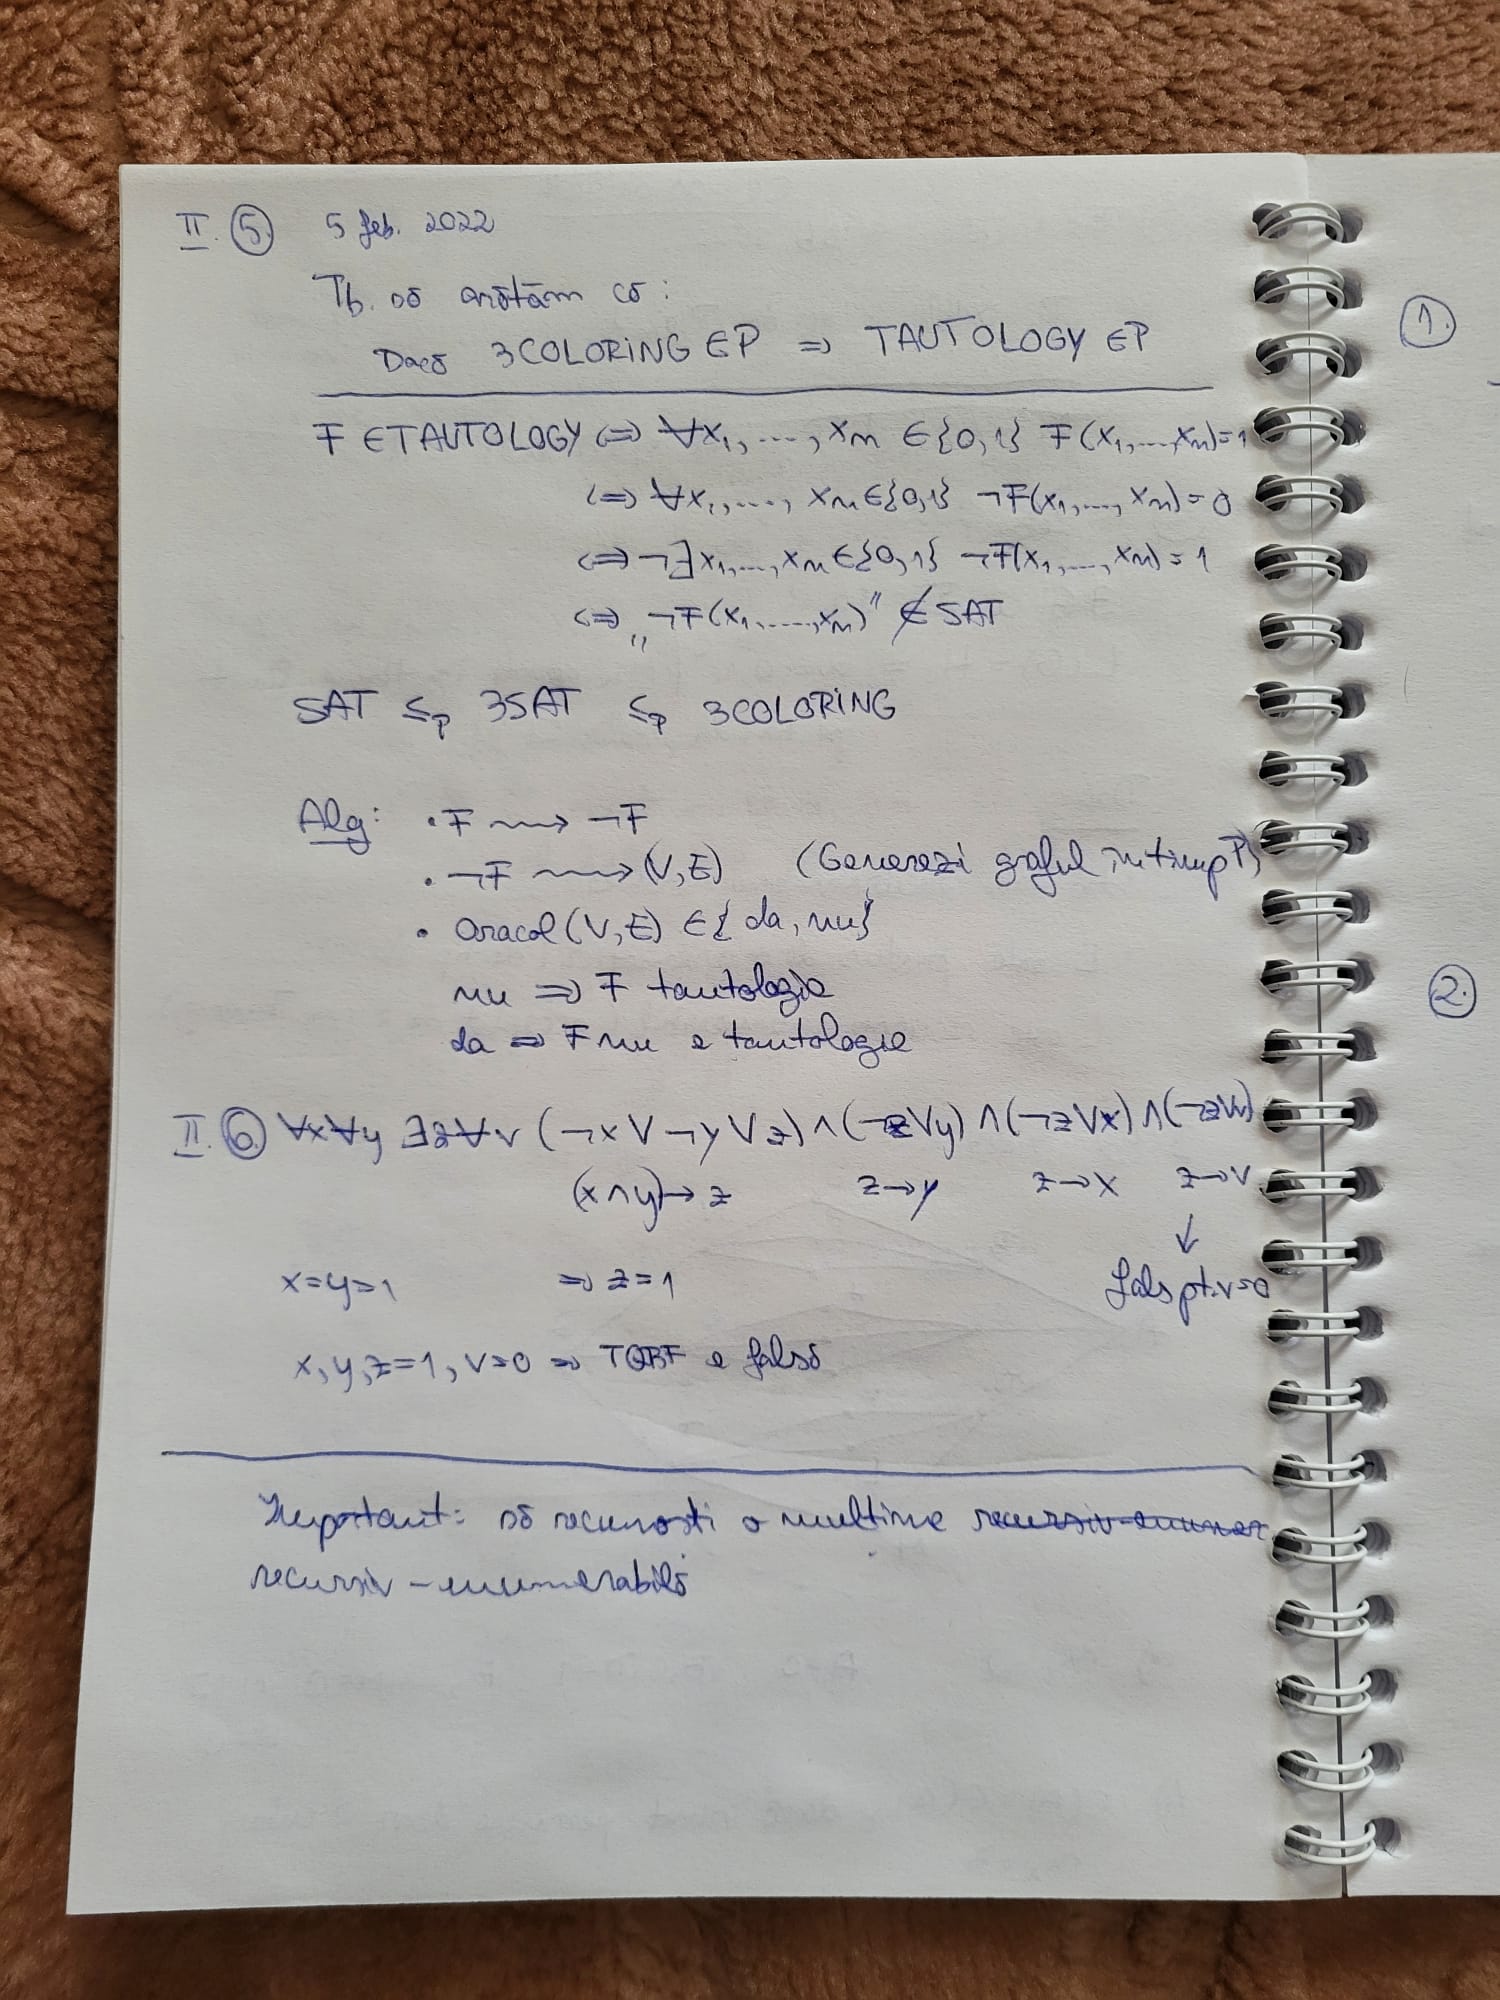 II. 5. 5 feb. 2022
Tb. să arătăm că:
Dacă 3COLORING ∈ P ⇒ TAUTOLOGY ∈ P
F ∈ TAUTOLOGY ⇔ ∀x₁, ..., xₙ ∈ {0,1} F(x₁, ..., xₙ) = 1
⇔ ∀x₁, ..., xₙ ∈ {0,1} ¬F(x₁, ..., xₙ) = 0
⇔ ¬∃x₁, ..., xₙ ∈ {0,1} ¬F(x₁, ..., xₙ) = 1
⇔ „¬F(x₁, ..., xₙ)" ∉ SAT
SAT ≤ₚ 3SAT ≤ₚ 3COLORING
Alg: • F ⇝ ¬F
• ¬F ⇝ (V,E) (Generezi graful în timp P)
• Oracol (V,E) ∈ {da, nu}
nu ⇒ F tautologie
da ⇒ F nu e tautologie
II. 6. ∀x∀y ∃z∀v (¬x ∨ ¬y ∨ z) ∧ (¬z ∨ y) ∧ (¬z ∨ x) ∧ (¬z ∨ v)
(x ∧ y) → z z → y z → x z → v
↓
x=y=1 ⇒ z=1 fals pt. v=0
x, y, z=1, v=0 ⇒ TQBF e falsă
Important: să recunoști o mulțime recursiv-enumer.
recursiv-enumerabilă
1.
2.